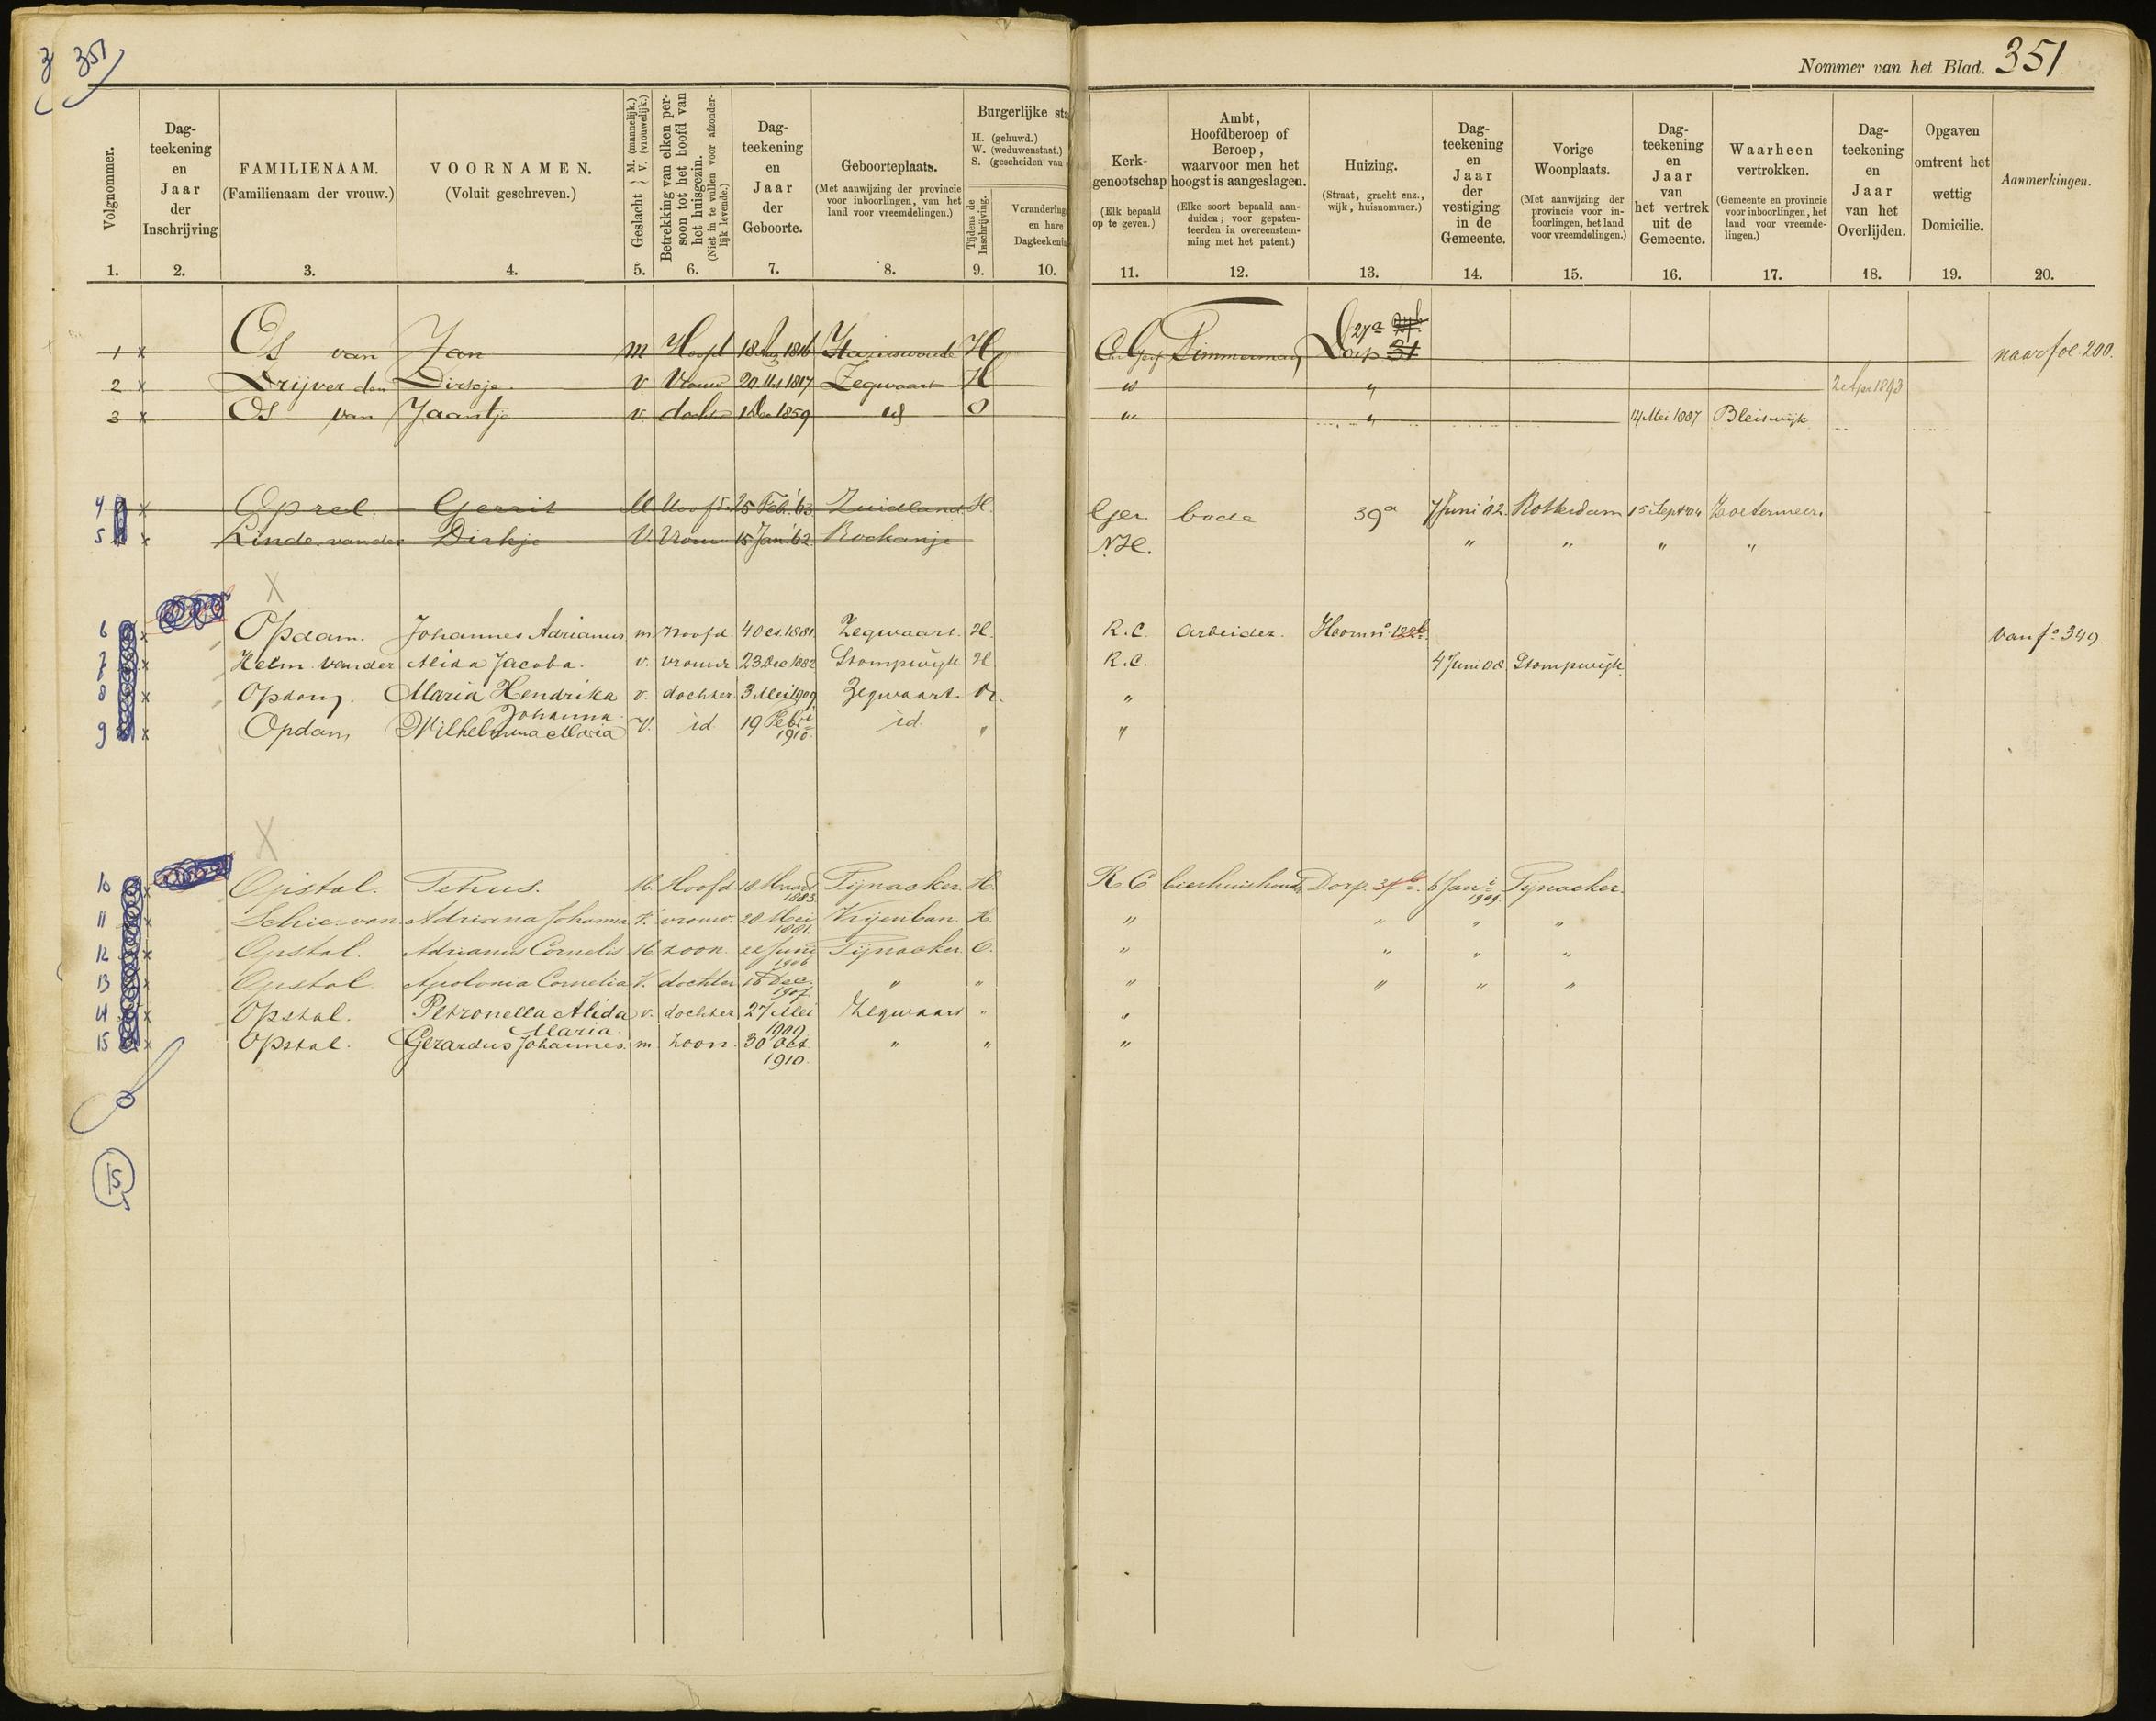 3 351
Nommer van het Blad. 351.
Volgnommer.
Dag-
teekening
en
Jaar
der
Inschrijving
FAMILIENAAM.
(Familienaam der vrouw.)
VOORNAMEN.
(Voluit geschreven.)
Geslacht { M. (mannelijk.) V. (vrouwelijk.)
Betrekking van elken per-
soon tot het hoofd van
het huisgezin.
(Niet in te vullen voor afzonder-
lijk levende.)
Dag-
teekening
en
Jaar
der
Geboorte.
Geboorteplaats.
(Met aanwijzing der provincie
voor inboorlingen, van het
land voor vreemdelingen.)
Burgerlijke sta
H. (gehuwd.)
W. (weduwenstaat.)
S. (gescheiden van
Tijdens de
Inschrijving.
Verandering
en hare
Dagteekenin
Kerk-
genootschap
(Elk bepaald
op te geven.)
Ambt,
Hoofdberoep of
Beroep,
waarvoor men het
hoogst is aangeslagen.
(Elke soort bepaald aan-
duiden; voor gepaten-
teerden in overeenstem-
ming met het patent.)
Huizing.
(Straat, gracht enz.,
wijk, huisnommer.)
Dag-
teekening
en
Jaar
der
vestiging
in de
Gemeente.
Vorige
Woonplaats.
(Met aanwijzing der
provincie voor in-
boorlingen, het land
voor vreemdelingen.)
Dag-
teekening
en
Jaar
van
het vertrek
uit de
Gemeente.
Waarheen
vertrokken.
(Gemeente en provincie
voor inboorlingen, het
land voor vreemde-
lingen.)
Dag-
teekening
en
Jaar
van het
Overlijden.
Opgaven
omtrent het
wettig
Domicilie.
Aanmerkingen.
1. 2. 3. 4. 5. 6. 7. 8. 9. 10. 11. 12. 13. 14. 15. 16. 17. 18. 19. 20.
1 x Os van Jan m Hoofd 18 1816 Hazerswoude H Timmerman Dorp 27a 31 naar fol 200.
2 x Drijver den Dirkje. v. Vrouw 20 1817 Zegwaart H id " 2 Apr 1893
3 x Os van Jaantje v. dochter 1 Dec 1859 id O " 14 Mei 1887 Bleiswijk
4 x Oprel. Gerrit M Hoofd 25 Feb. '63 Zuidland H. Ger. bode 39a 7 Juni '02. Rotterdam 15 Sept '04 Zoetermeer.
5 x Linde. van der Dirkje V. Vrouw 15 Jan '62 Rockanje N.H. " " " "
X
6 x Opdam. Johannes Adrianus m. Hoofd. 4 Oct. 1881. Zegwaart. H. R.C. Arbeider. Hoorn no. 122b. van fo. 349.
7 x Helm. van der Alida Jacoba. v. vrouw 23 Dec 1882 Stompwijk H R.C. 4 Juni 08 Stompwijk.
8 x Opdam. Maria Hendrika v. dochter. 3 Mei 1909 Zegwaart. O. "
9 x Opdam Wilhelmina Johanna Maria V. id 19 Febri 1910. id. " "
X
10 x Opstal. Petrus. M. Hoofd 18 Maart 1883. Pijnacker. H. R.C. bierhuishoud. Dorp. 6 Jani 1909. Pijnacker.
11 x Schie van Adriana Johanna V. vrouw. 28 Mei 1881. Vrijenban. H. " " " "
12 x Opstal. Adrianus Cornelis. M zoon. 22 Juni 1906 Pijnacker. O. " " " "
13 x Opstal. Apolonia Cornelia V. dochter 18 Dec. 1907. " " " " " "
14 x Opstal. Petronella Alida v. dochter 27 Mei 1909. Zegwaart " "
15 x Opstal. Gerardus Johannes Maria. m. zoon. 30 Oct. 1910. " " "
15